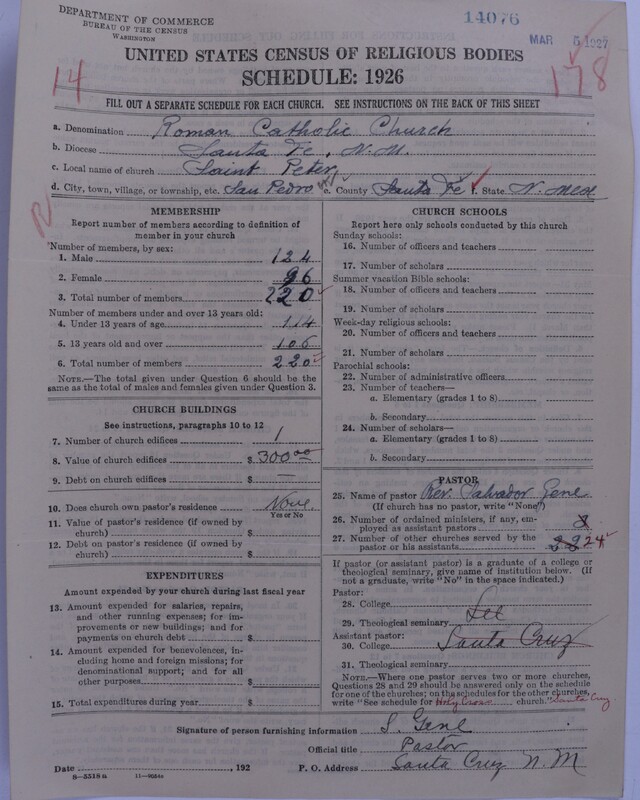 DEPARTMENT OF COMMERCE
BUREAU OF THE CENSUS
WASHINGTON
14076
MAR 5 1927
UNITED STATES CENSUS OF RELIGIOUS BODIES
SCHEDULE: 1926
14
178
FILL OUT A SEPARATE SCHEDULE FOR EACH CHURCH. SEE INSTRUCTIONS ON THE BACK OF THIS SHEET
a. Denomination Roman Catholic Church
b. Diocese Santa Fe, N.M.
c. Local name of church Saint Peter
d. City, town, village, or township, etc. San Pedro e. County Santa Fe f. State N. Mex
MEMBERSHIP
Report number of members according to definition of
member in your church
Number of members, by sex:
1. Male 124
2. Female 96
3. Total number of members 220
Number of members under and over 13 years old:
4. Under 13 years of age 114
5. 13 years old and over 106
6. Total number of members 220
NOTE.—The total given under Question 6 should be the
same as the total of males and females given under Question 3.
CHURCH BUILDINGS
See instructions, paragraphs 10 to 12
7. Number of church edifices 1
8. Value of church edifices $ 300.00
9. Debt on church edifices $ —
10. Does church own pastor's residence None
Yes or No
11. Value of pastor's residence (if owned by
church) $
12. Debt on pastor's residence (if owned by
church) $
EXPENDITURES
Amount expended by your church during last fiscal year
13. Amount expended for salaries, repairs,
and other running expenses; for im-
provements or new buildings; and for
payments on church debt $
14. Amount expended for benevolences, in-
cluding home and foreign missions; for
denominational support; and for all
other purposes $
15. Total expenditures during year $
CHURCH SCHOOLS
Report here only schools conducted by this church
Sunday schools:
16. Number of officers and teachers
17. Number of scholars
Summer vacation Bible schools:
18. Number of officers and teachers
19. Number of scholars
Week-day religious schools:
20. Number of officers and teachers
21. Number of scholars
Parochial schools:
22. Number of administrative officers
23. Number of teachers—
a. Elementary (grades 1 to 8)
b. Secondary
24. Number of scholars—
a. Elementary (grades 1 to 8)
b. Secondary
PASTOR
25. Name of pastor Rev. Salvador Gene
(If church has no pastor, write "None")
26. Number of ordained ministers, if any, em-
ployed as assistant pastors
27. Number of other churches served by the
pastor or his assistants 24
If pastor (or assistant pastor) is a graduate of a college or
theological seminary, give name of institution below. (If
not a graduate, write "No" in the space indicated.)
Pastor:
28. College
29. Theological seminary See
Assistant pastor:
30. College Santa Cruz
31. Theological seminary
NOTE.—Where one pastor serves two or more churches,
Questions 28 and 29 should be answered only on the schedule
for one of the churches; on the schedules for the other churches,
write "See schedule for Holy Cross church." Santa Cruz
Signature of person furnishing information S. Gene
Official title Pastor
Date , 192 P. O. Address Santa Cruz N. M
8—5518 a